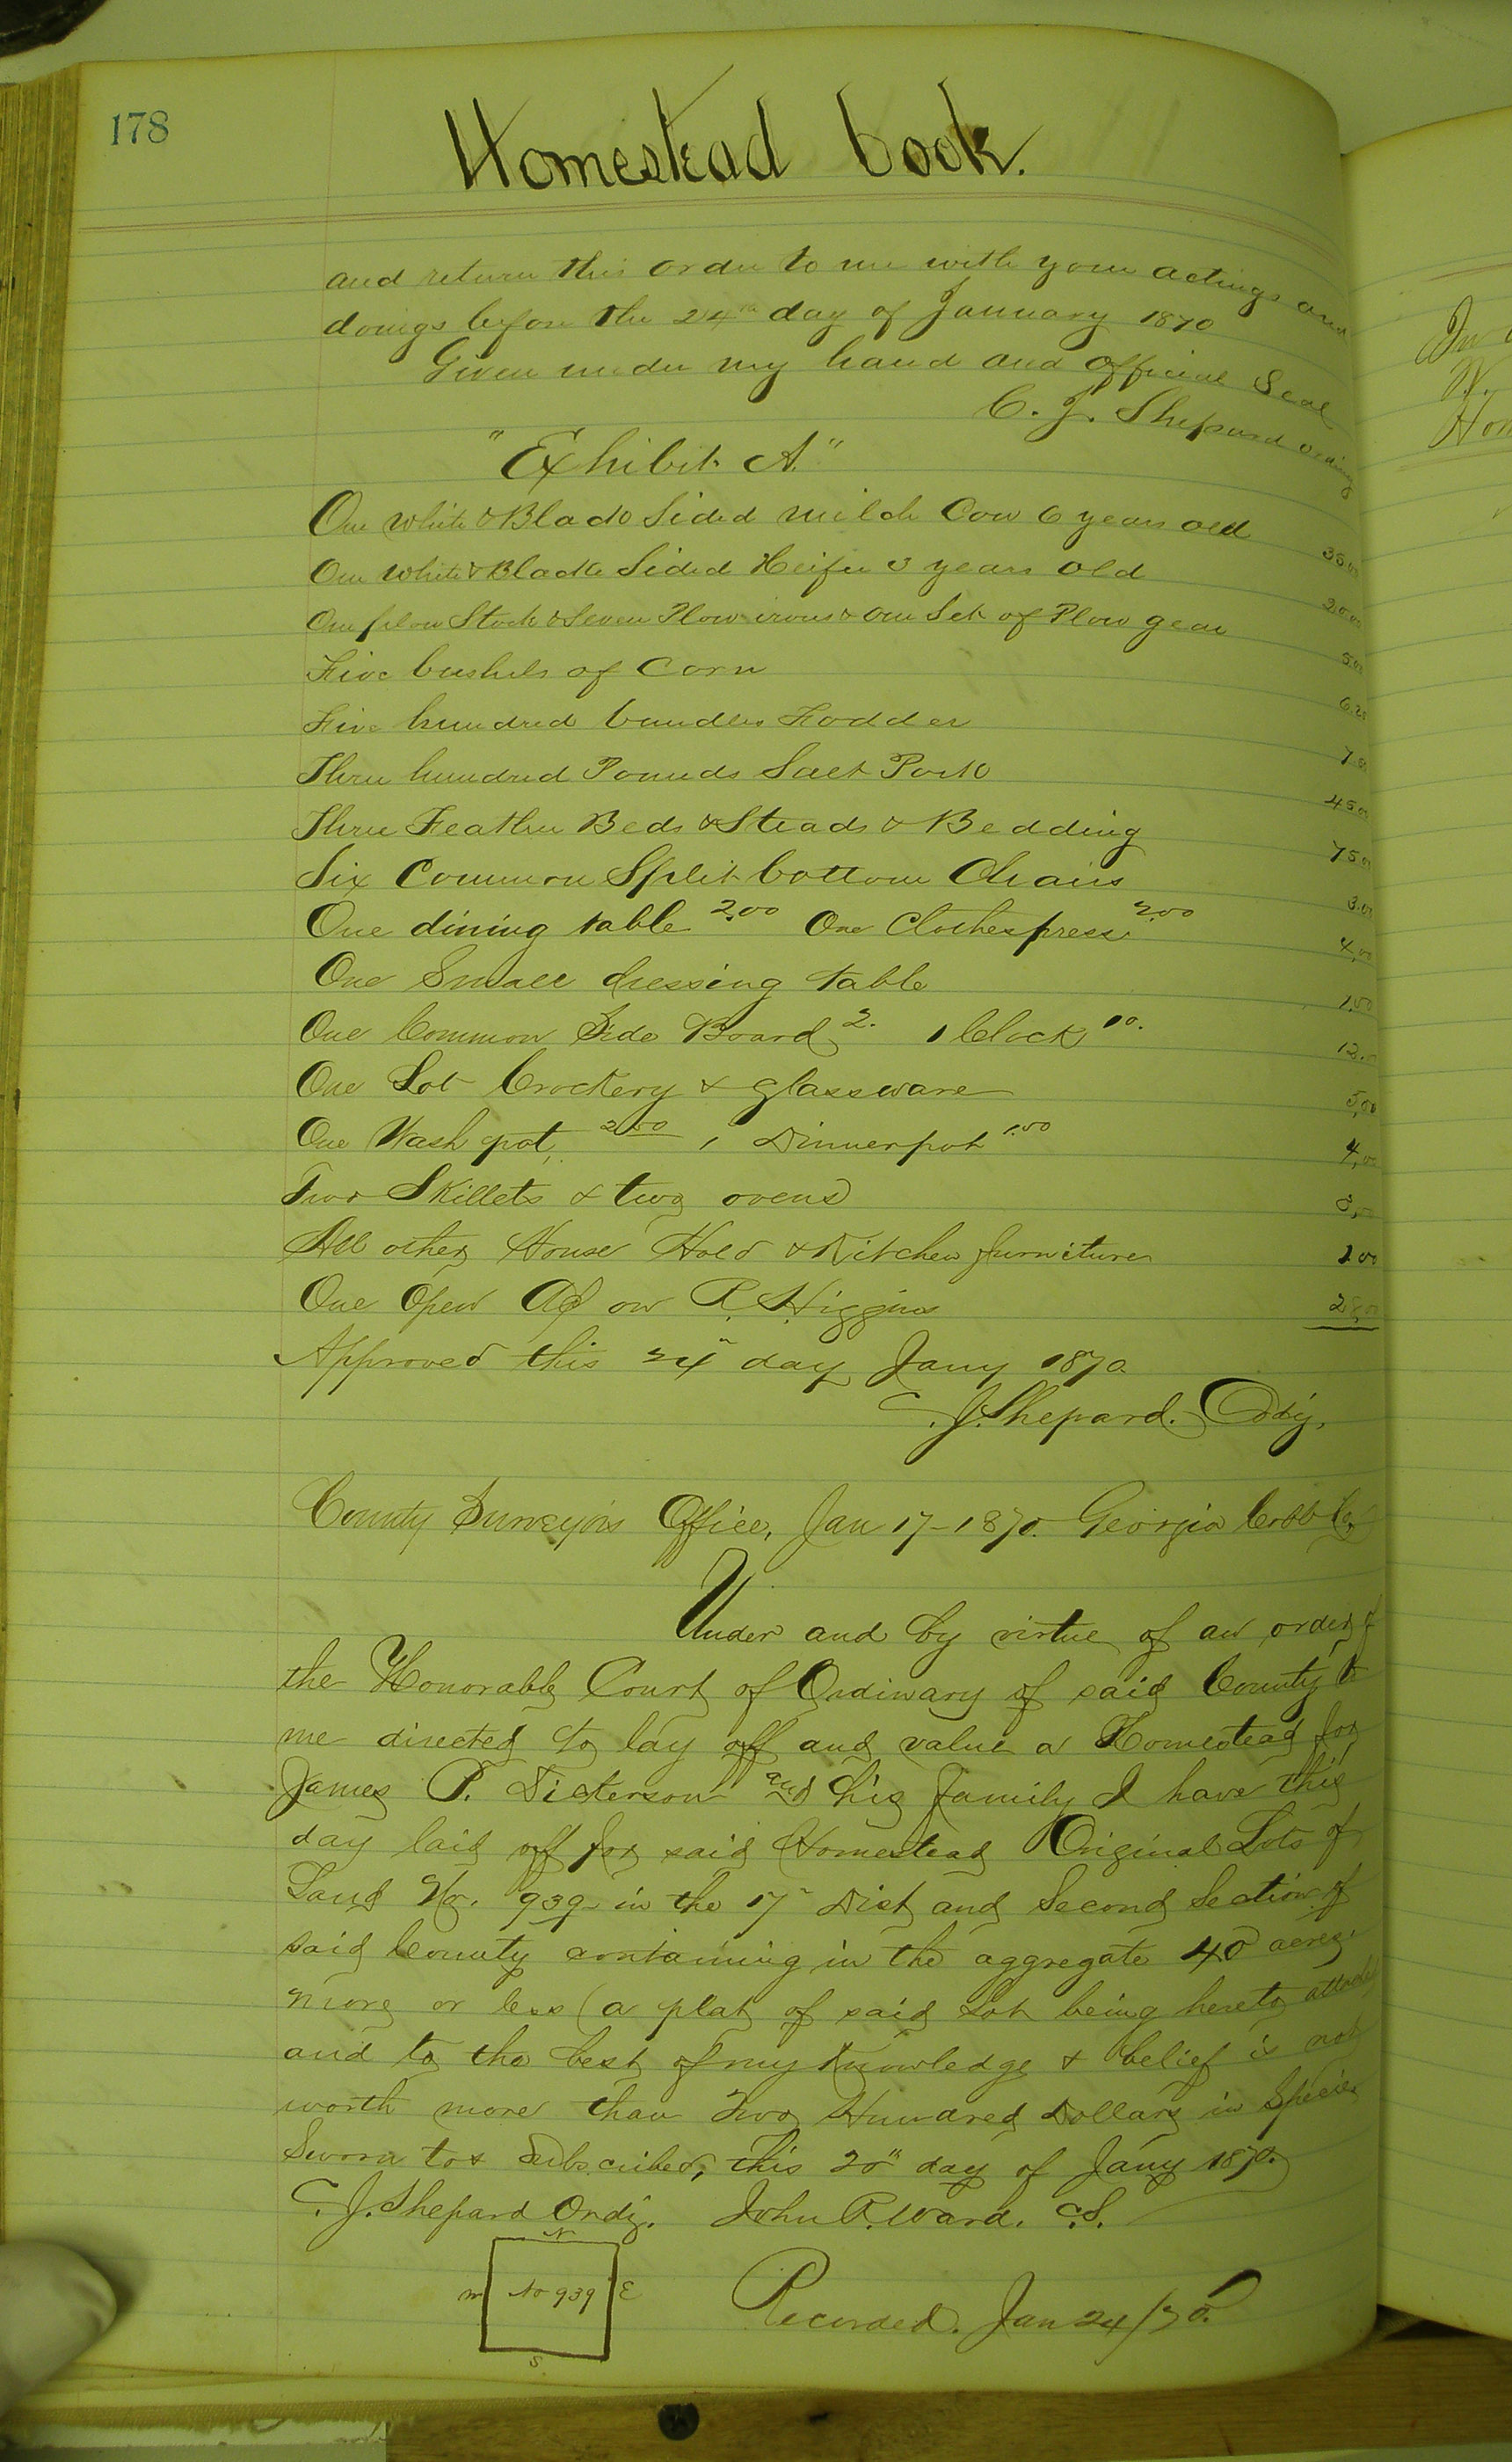 178
Homestead book.
and return this order to me with your actings and
doings before the 24th day of January 1870
Given under my hand and official Seal
C. J. Shepard Ordinry
"Exhibit A."
One white & Black Sided milch Cow 6 years old 35.00
One White & Black Sided Heifer 3 years old 20.00
One plow Stock & Seven Plow irons & one Set of Plow gear 5.00
Five bushels of Corn 6.25
Five hundred bundles Fodder 7.50
Three hundred Pounds Salt Pork 45.00
Three Feather Beds & Steads & Bedding 75.00
Six Common Split bottom Chairs 3.00
One dining table 2.00 One Clothespress 2.00 4.00
One Small dressing table 1.50
One Common Side Board 2. 1 Clock 10. 12.00
One Lot Crockery & glassware 5.00
One Wash pot, 2.50 1 Dinnerpot 1.50 4.00
Two Skillets & two ovens 3.00
All other House Hold & Kitchen furniture
One Open A/c on R. Higgins
Approved this 24" day Jany 1870
C. J. Shepard. Ordy.
County Surveyors Office, Jan 17-1870. Georgia Cobb Co.
Under and by virtue of an order of
the Honorable Court of Ordinary of said County to
me directed to lay off and value a Homestead for
James P. and his family I have this
day laid off for said Homestead Original Lots of
Land No. 939 in the 17" Dist and Second Section of
said County containing in the aggregate 40 acres
more or less (a plat of said Lot being hereto attached
and to the best of my Knowledge & belief is not
worth more than Two Hundred Dollars in Specie
Sworn to & Subscribed, this 20" day of Jany 1870.
C. J. Shepard Ordy. John R. Ward. C.S.
N
W No 939 E
S
Recorded. Jan 24/70.
In
W.
Hom